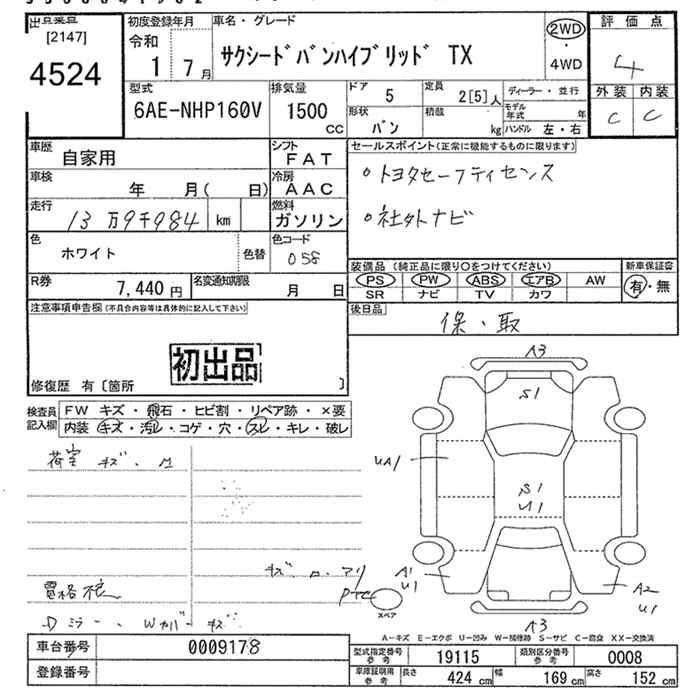 出品票
[2147]
4524
初度登録年月
令和
1 7月
車名・グレード
サクシードバンハイブリッド TX
2WD
4WD
評価点
4
外装 内装
C C
型式
6AE-NHP160V
排気量
1500
CC
ドア
5
定員
2[5]人
ディーラー・並行
形状
バン
積載
kg
モデル年式 年
ハンドル 左・右
車歴
自家用
シフト
FAT
車検
年 月( 日)
冷房
AAC
走行
13万9千984 km
燃料
ガソリン
色
ホワイト
色替
色コード
058
R券
7,440円
名変通知期限
月 日
セールスポイント(正常に機能するものに限ります)
○トヨタセーフティセンス
○社外ナビ
装備品(純正品に限り○をつけてください)
新車保証書
PS PW ABS エアB AW
SR ナビ TV カワ
有・無
後日品
保・取
注意事項申告欄(不具合内容等は具体的に記入して下さい)
初出品
修復歴 有〔箇所 〕
検査員
記入欄
FW キズ・飛石・ヒビ割・リペア跡・×要
内装 キズ・汚レ・コゲ・穴・スレ・キレ・破レ
荷室 キズ
キズ
Dミラー、Wカバーキズ
A3
S1
UA1
S1
U1
A1
U1
A2
U1
A3
スペア
A-キズ E-エクボ U-凹み W-補修跡 S-サビ C-腐食 XX-交換済
車台番号
0009178
登録番号
型式指定番号
参考
19115
類別区分番号
参考
0008
車庫証明用
参考
長さ 424 cm 幅 169 cm 高さ 152 cm